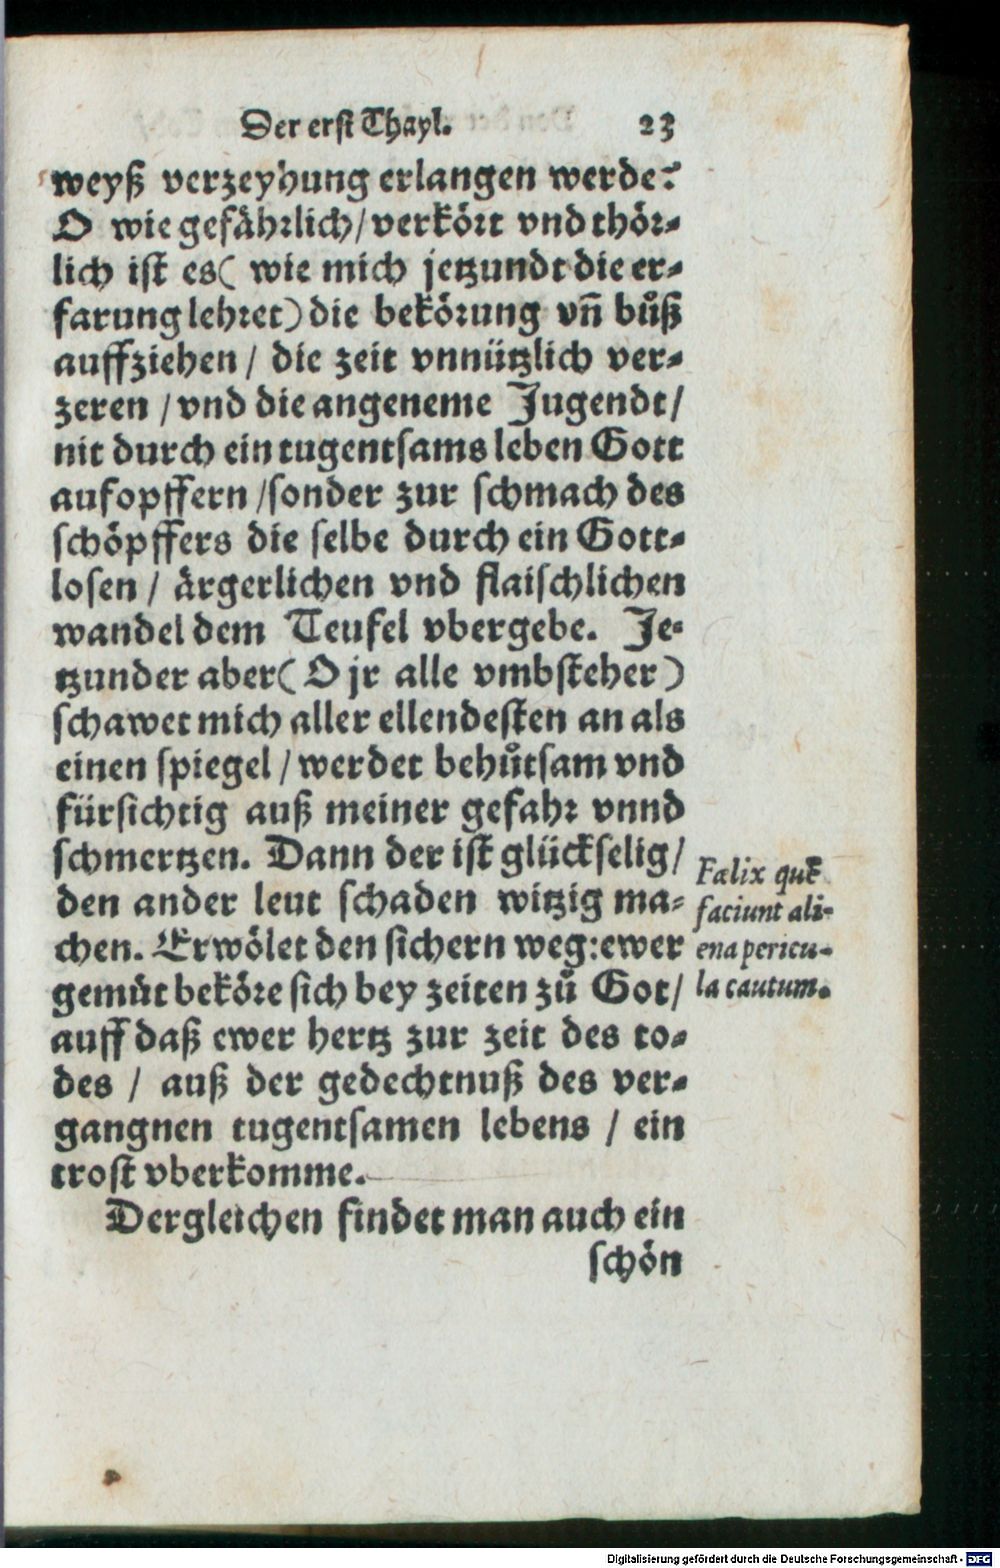 Der erst Thayl. 23
weyß verzeyhung erlangen werde?
O wie gefährlich/ verkört vnd thör-
lich ist es( wie mich jetzundt die er-
farung lehret) die bekörung vn̄ bůß
auffziehen / die zeit vnnützlich ver-
zeren / vnd die angeneme Jugendt/
nit durch ein tugentsams leben Gott
aufopffern /sonder zur schmach des
schöpffers die selbe durch ein Gott-
losen / ärgerlichen vnd flaischlichen
wandel dem Teufel vbergebe. Je-
tzunder aber( O jr alle vmbsteher)
schawet mich aller ellendesten an als
einen spiegel / werdet behůtsam vnd
fürsichtig auß meiner gefahr vnnd
schmertzen. Dann der ist glückselig/
den ander leut schaden witzig ma-
chen. Erwölet den sichern weg: ewer
gemüt beköre sich bey zeiten zů Got/
auff daß ewer hertz zur zeit des to-
des / auß der gedechtnuß des ver-
gangnen tugentsamen lebens / ein
trost vberkomme.
Dergleichen findet man auch ein
schön
Fælix quē
faciunt ali-
ena pericu-
la cautum.
Digitalisierung gefördert durch die Deutsche Forschungsgemeinschaft - DFG